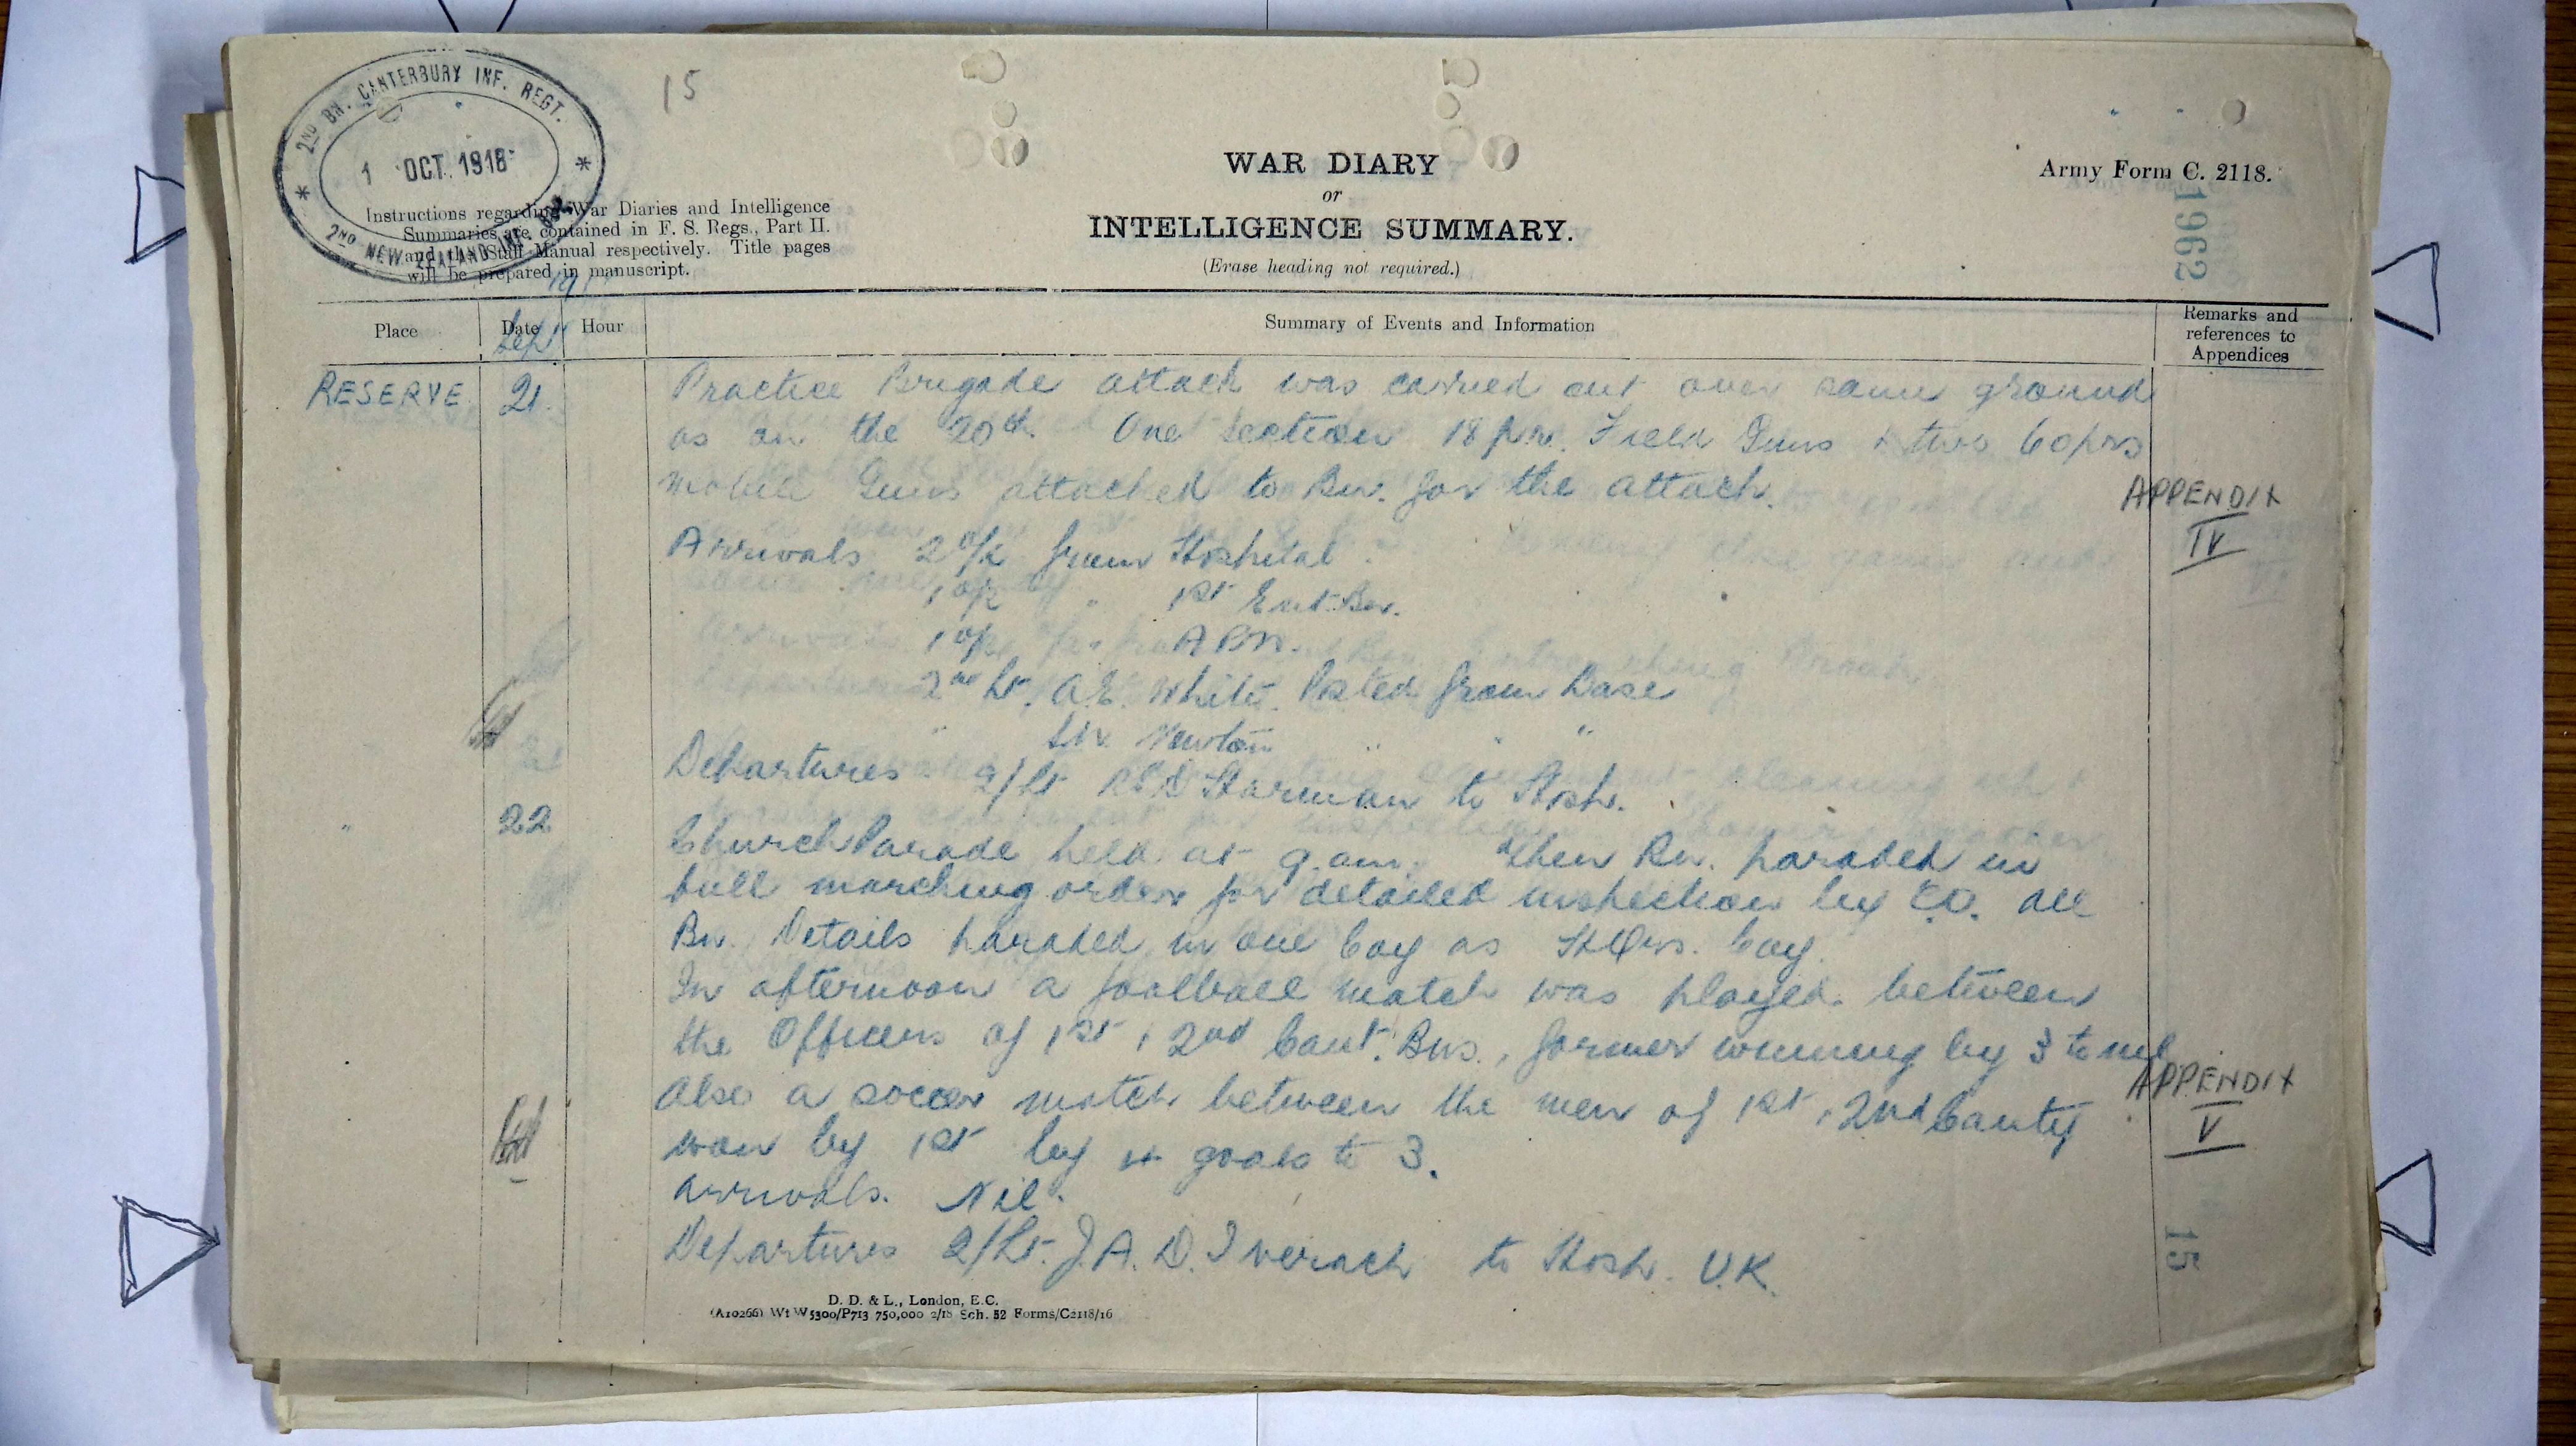 2ND BN. CANTERBURY INF. REGT.
1 OCT. 1918
2ND NEW ZEALAND INF. BDE.
15
WAR DIARY
or
INTELLIGENCE SUMMARY.
(Erase heading not required.)
Army Form C. 2118.
1962
Instructions regarding War Diaries and Intelligence
Summaries are contained in F. S. Regs., Part II.
and the Staff Manual respectively. Title pages
will be prepared in manuscript.
Place Date Hour Summary of Events and Information Remarks and references to Appendices
Sept
RESERVE 21. Practice Brigade attack was carried out over same ground
as on the 20th. One Section 18 pr. Field Guns & two 60prs
mobile Guns attached to Bn. for the attack.
APPENDIX
IV
Arrivals 2 o/r from Hospital.
1 o/r " 1st Ent. Bn.
1 o/r
2nd Lt. A.E. White. Posted from Base
" Newton " " "
Departures 2/Lt Harman to Hosp.
" 22 Church Parade held at 9.am. Then Bn. paraded in
full marching order for detailed inspection by C.O. All
Bn. Details paraded in one Coy as HQrs. Coy.
In afternoon a football match was played between
the Officers of 1st & 2nd Cant. Bns., former winning by 3 to nil
Also a soccer match between the men of 1st & 2nd Canty
won by 1st by 4 goals to 3.
APPENDIX
V
Arrivals. Nil.
Departures 2/Lt. J.A.D. Iverach to Hosp. U.K.
15
D. D. & L., London, E.C.
(A10266) Wt W5300/P713 750,000 2/18 Sch. 52 Forms/C2118/16